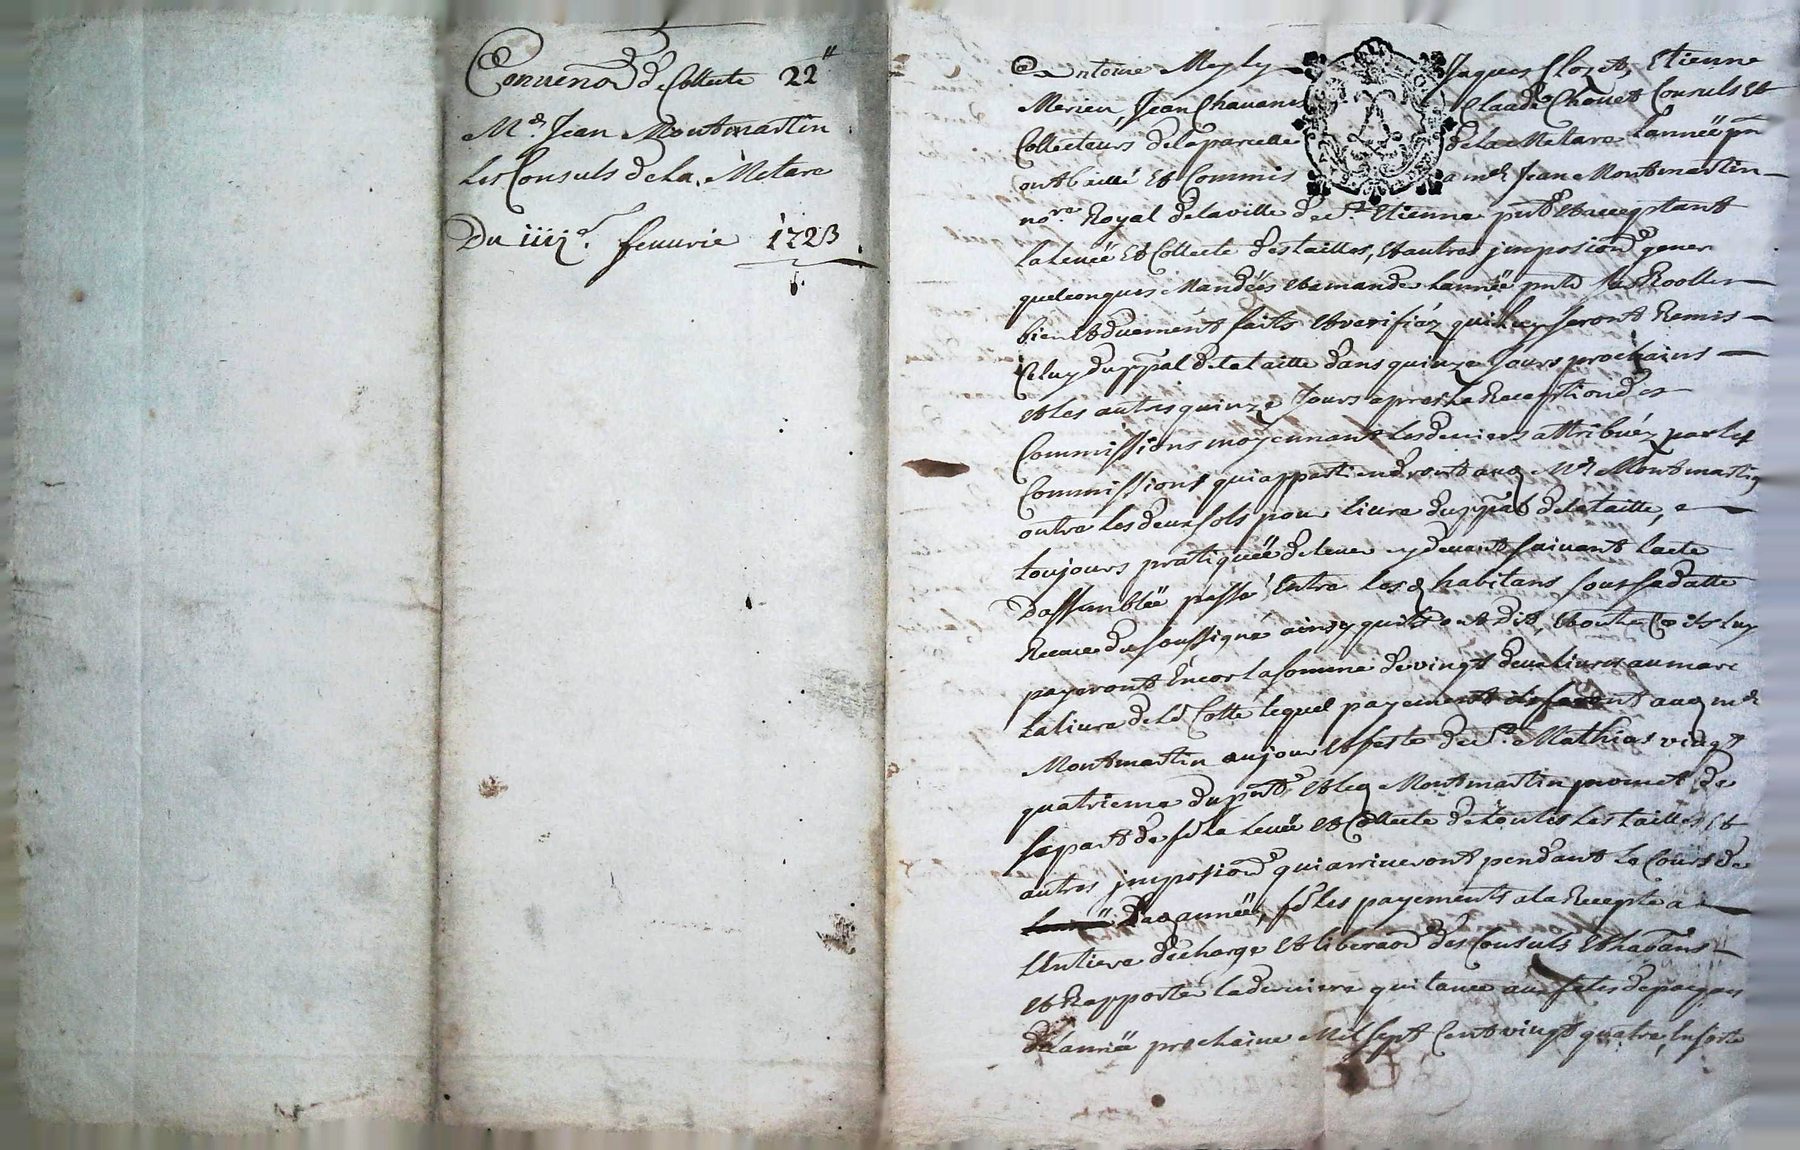 Convenõn de Collecte 22"
Me. Jean Montmartin
Les Consuls de La Metare
Du iiije. feuurie 1723
Antoine Meyly Jaques Clozet, Etienne
Merieu, Jean Chauanis Claade Chouet Consuls Et
Collecteurs delaparcelle dela Metare Lannéë pñt
ont baillé Et Commis a me Jean Montmartin
nore Royal delaville de St Etienne pnt Et acceptant
la leuéë Et Collecte destailles, et autres jmposiõns gener
quelconques Mandéés et amander Lannéë pnte les Roolles
bien Et duement faits Et verifiéz quiluy seront Remis
Celuy duppal delataille dans quinze Jours prochains
Et les autres quinze Jours apres la Reception des
Commissions moyennant les deniers attribuéz par les
Commissions qui appartiendront aud Me Montmartin
outre les deux sols pour liure duppal delataille, a
toujours pratiquéë deleuer cydeuant suiuant lacte
Dassembléë passé Entre les d habitans sous sa datte
Receue du soussigné ainsy quils ont dit, Et outre Ce ils luy
payeront Encor la somme de vingt deux liures au marc
La liure de ld Cotte lequel payement ils feront aud me
Montmartin aujour Et feste de St Mathias vingt
quatrieme du pnt Et led Montmartin promet de
sa part de fe la leuéë et Collecte de toutes les tailles Et
autres jmposiõns qui arriueront pendant le Cours de
lad annéë, fe les payements ala Recepte a
LEntiere décharge Et liberaõn des Consuls Et habans
Et Rapporter laderniere quitance aux fetes depaques
delannéë prochaine Mil sept Cent vingt quatre, Ensorte